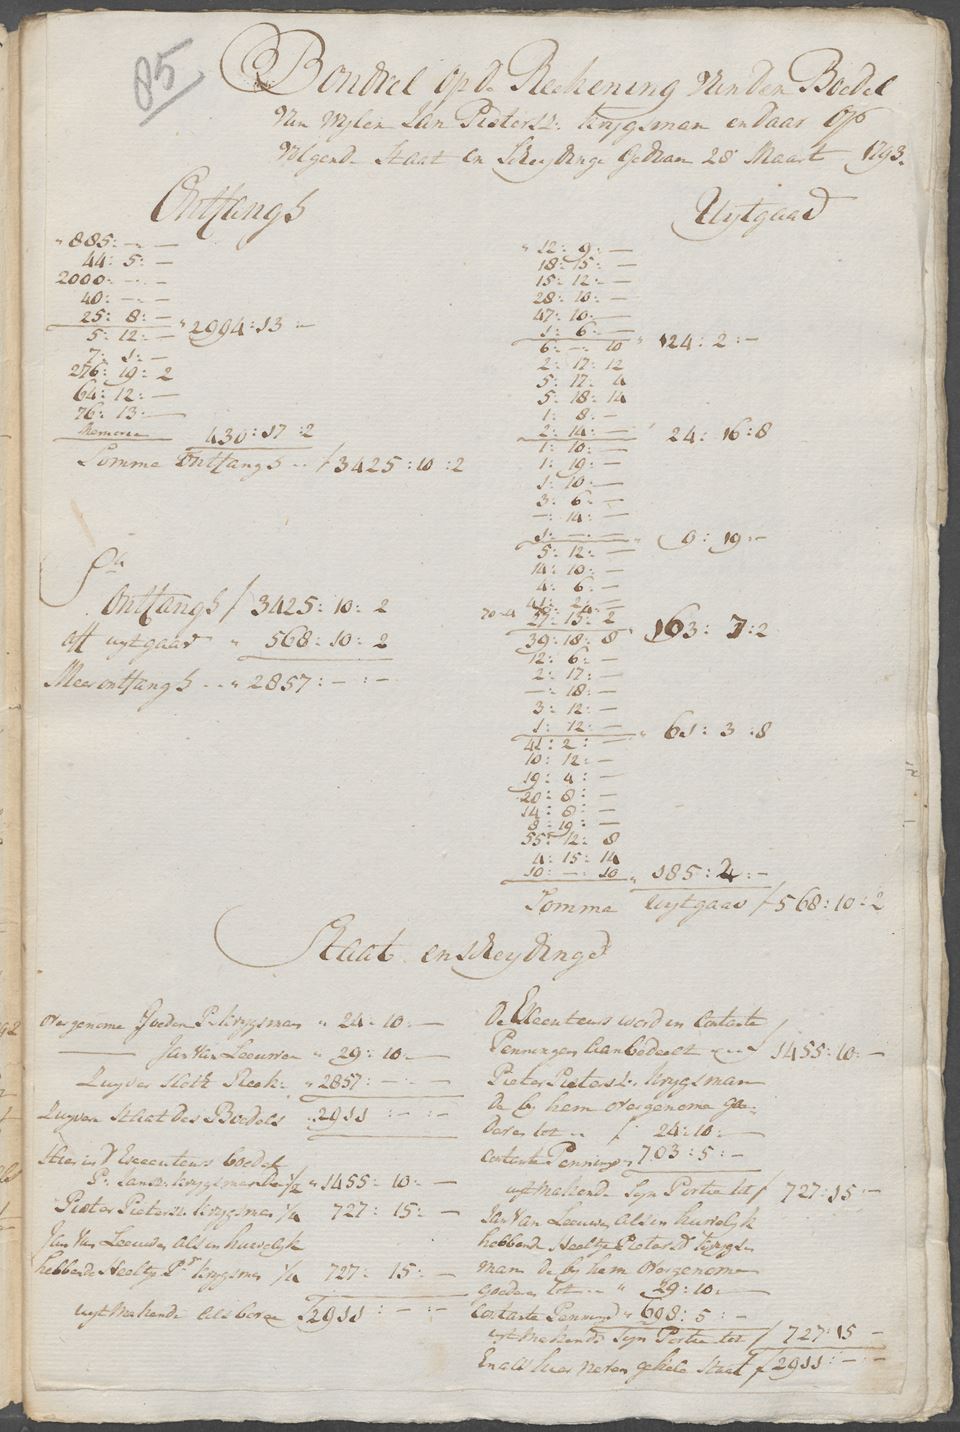 85
Bondeel op de Reekening van den Boedel
van wylen Jan Pietersz: Krygsman en daar op
volgende Staat en Scheydinge Gedaan 28 Maart 1793.
Ontfangh
" 885: -. -
44: 5: -
2000: -. -
40: -. -
25: 8: - " 2994: 13: -
5: 12: -
7: 1: -
276: 19: 2
64: 12: -
76: 13: -
Memorie 430: 17: 2
Somma Ontfangh .. ƒ 3425: 10: 2
Ontfangh ƒ 3425: 10: 2
Aff uytgaav " 568: 10: 2
Meer ontfangh .. " 2857: -: -
Uytgaav
" 12: 9: -
18: 15: -
15: 12: -
28: 10: -
47: 10: -
1: 6: - " 124: 2: -
6: -: 10
2: 17: 12
5: 17: 4
5: 18: 14
1: 8: -
2: 14: - " 24: 16: 8
1: 10: -
1: 19: -
1: 10: -
3: 6: -
-: 14: -
1: -: - " 9: 19: -
5: 12: -
14: 10: -
4: 6: -
41: 2: -
27: 15: 2 " 163: 7: 2
39: 18: 8
12: 6: -
2: 17: -
-: 18: -
3: 12: -
1: 12: - " 61: 3: 8
41: 2: -
10: 12: -
19: 4: -
20: 8: -
14: 8: -
8: 19: -
55: 12: 8
4: 15: 14
10: -: 10 " 185: 4: -
Somma Uytgaav ƒ 568: 10: 2
Staat en scheydinge
overgenome Goeden P: Krygsman " 24: 10: -
Jan van Leeuwen " 29: 10: -
Zuyver Slot Reek: " 2857: -: -
Zuyvere Staat des Boedels 2911: -: -
Hier in d' Executeurs boedel
P: Jansz: Krygsman de 1/2 " 1455: 10: -
Pieter Pietersz: Krygsman 1/4 727: 15: -
Jan van Leeuwen als in huwelyk
hebbende Neeltje Pr Krygsman 1/4 727: 15: -
uytmakende als boven ƒ 2911: -: -
de Executeurs word in Contante
Penningen Aanbedeelt .. ƒ 1455: 10: -
Pieter Pietersz: Krygsman
de by hem overgenome goe-
deren tot .. ƒ 24: 10: -
Contante Penning " 703: 5: -
uytmakende Syn Portie tot ƒ 727: 15: -
Jan van Leeuwen Als in huwelyk
hebbende Neeltje Pietersd Krygs-
man de by hem overgenome
goederen tot .. " 29: 10: -
Contante Penning " 698: 5: -
uytmakende Syn Portie tot ƒ 727: 15 -
En als hier voren geheele Staat ƒ 2911: -: -